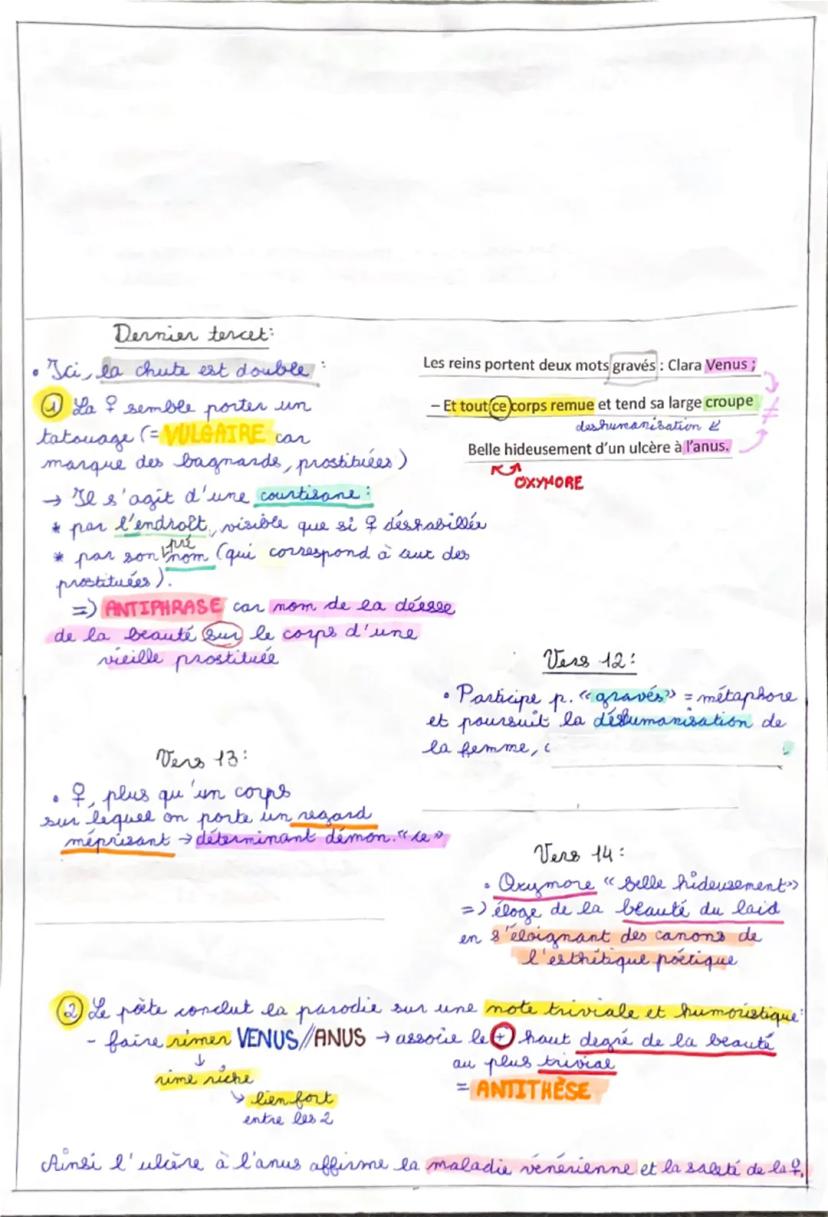 Dernier tercet:
• Ici, la chute est double :
① La ♀ semble porter un
tatouage (= VULGAIRE car
marque des bagnards, prostituées)
→ Il s'agit d'une courtisane :
* par l'endroit, visible que si ♀ déshabillée
* par son prénom (qui correspond à aux des
prostituées).
=) ANTIPHRASE car nom de la déesse
de la beauté sur le corps d'une
vieille prostituée
Les reins portent deux mots gravés : Clara Venus ;
– Et tout ce corps remue et tend sa large croupe
deshumanisation
Belle hideusement d'un ulcère à l'anus.
OXYMORE
≠
Vers 12 :
• Participe p. "gravés" = métaphore
et poursuit la déshumanisation de
la femme,
Vers 13 :
• ♀, plus qu'un corps
sur lequel on porte un regard
méprisant → déterminant démon. "ce"
Vers 14 :
• Oxymore "belle hideusement"
=) éloge de la beauté du laid
en s'éloignant des canons de
l'esthétique poétique
② Le poète conclut la parodie sur une note triviale et humoristique :
- faire rimer VENUS//ANUS → associe le + haut degré de la beauté
au plus trivial
= ANTITHÈSE
↓
rime riche
↘ lien fort
entre les 2
Ainsi l'ulcère à l'anus affirme la maladie vénérienne et la saleté de la ♀.